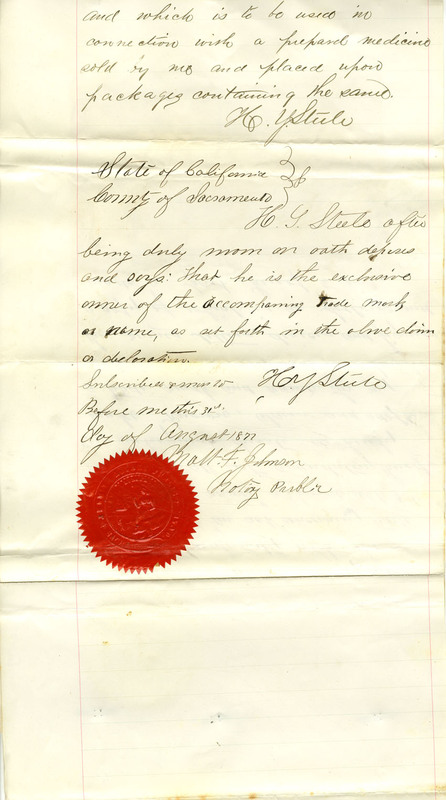 and which is to be used in
connection with a prepared medicine
sold by me and placed upon
packages containing the same.
H. G. Steele
State of California } ss
County of Sacramento
H. G. Steele after
being duly sworn on oath deposes
and says: that he is the exclusive
owner of the accompaning trade mark
or name, as set forth in the above claim
or declaration.
Subscribed & sworn to H G Steele
Before me this 31st
day of August 1877
Matt. F. Johnson
Notary Public